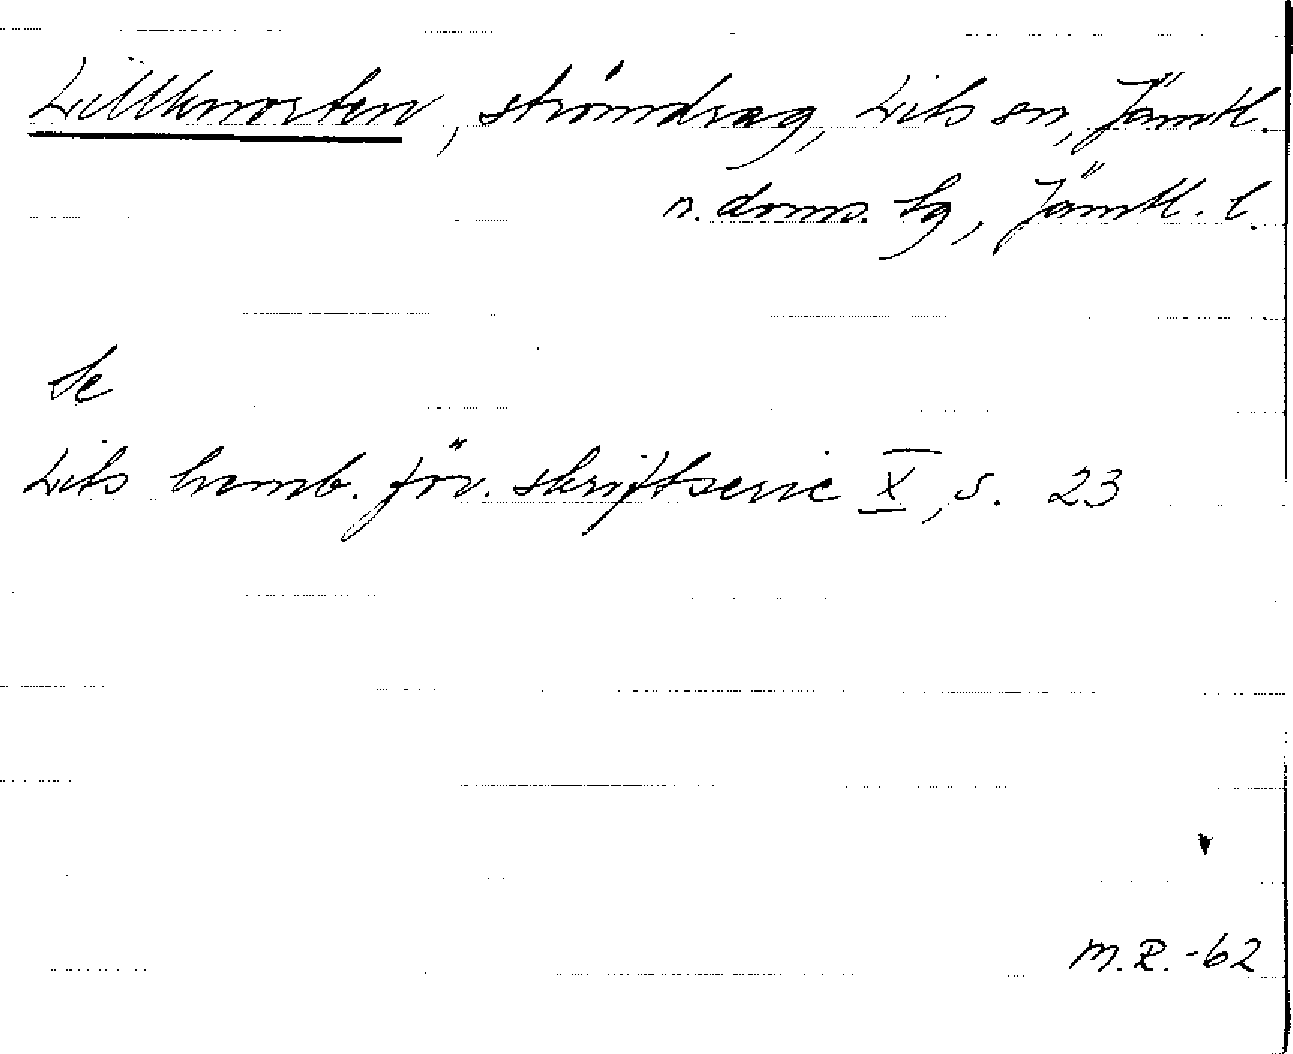 Lillknorten, strömdrag, Lits sn, Jämtl.
n. doms. tg, Jämtl. l.
Se
Lits hemb. för. skriftserie X, s. 23
M.R. -62